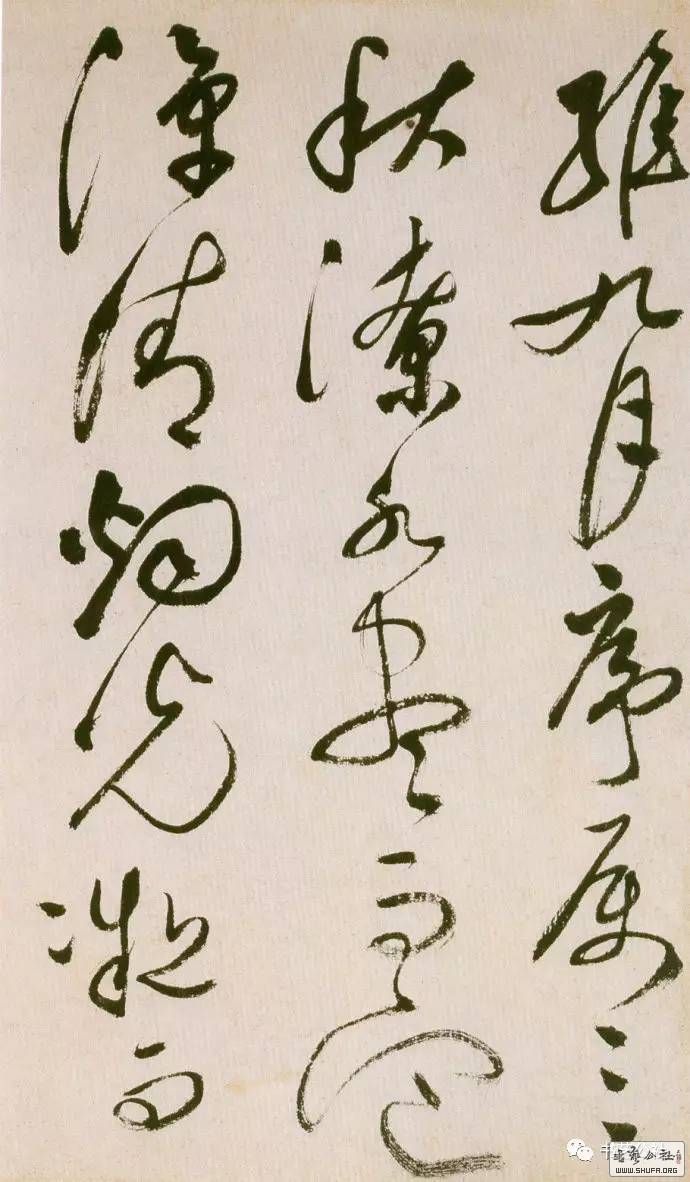 維九月序属三
秋潦水盡而寒
潭清烟光凝而
書藝公社
WWW.SHUFA.ORG